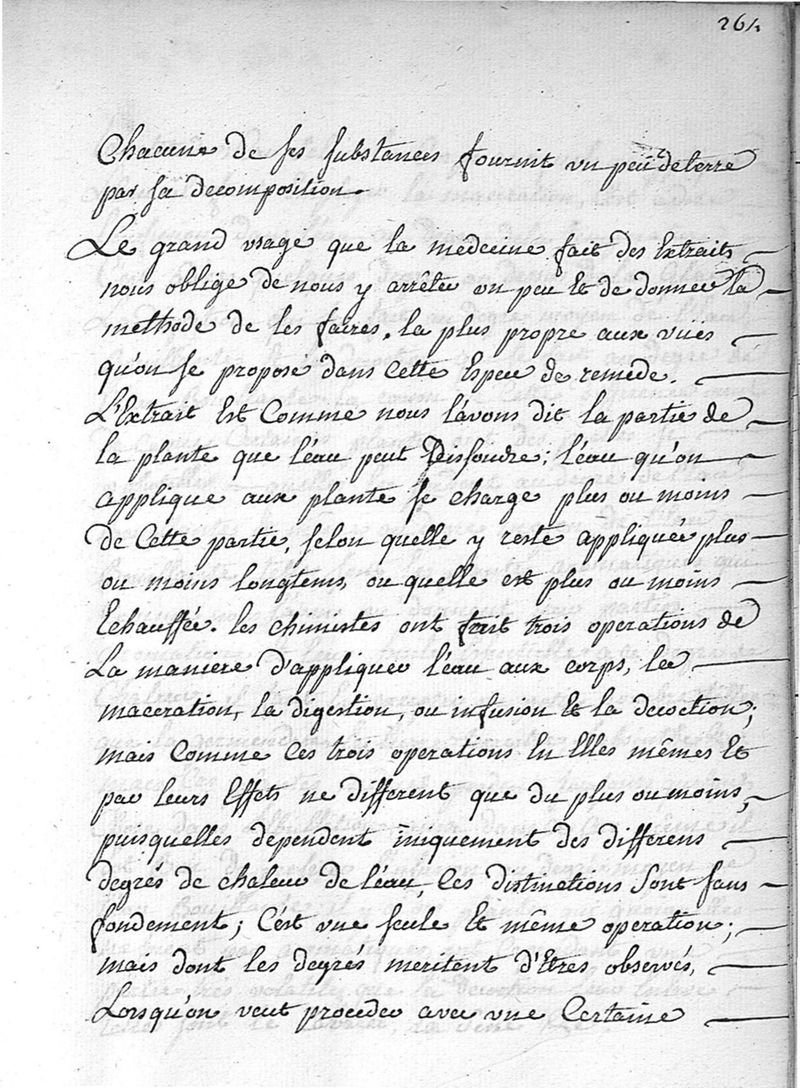 264
Chacune de ses substances fournit un peu de terre
par sa decomposition.
Le grand usage que la medecine fait des Extraits
nous oblige de nous y arrêter un peu Et de donner la
methode de les faires, la plus propre aux vues
qu'on se propose dans Cette Espece de remede.
L'Extrait Est Comme nous l'avons dit la partie de
la plante que l'eau peut Dissoudre; l'eau qu'on
applique aux plante se charge plus ou moins
de Cette partie, selon quelle y reste appliquée plus
ou moins longtems, ou quelle est plus ou moins
Echauffée. les chimistes ont fait trois operations de
La maniere d'appliquer l'eau aux corps, la
maceration, la digestion, ou infusion Et la decoction;
mais Comme Ces trois operations En Elles mêmes Et
par leurs Effets ne different que du plus ou moins,
puisquelles dependent uniquement des differens
degrés de chaleur de l'eau, Ces distinctions Sont sans
fondement; C'est une seule Et même operation;
mais dont les degrés meritent d'Etres observés,
Lorsqu'on veut proceder avec une Certaine